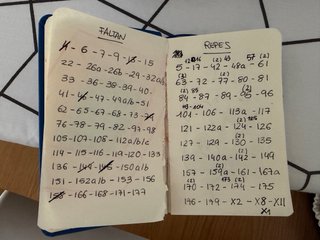 FALTAN
4 - 6 - 7 - 9 - 13 - 15
22 - 26a - 26b - 29 - 32a/b
33 - 36 - 38 - 39 - 40
41 - 46 - 47 - 49a/b - 51
62 - 65 - 67 - 68 - 73 - 74
76 - 78 - 79 - 82 - 93 - 98
105 - 107 - 108 - 112a/b/c
114 - 115 - 116 - 119 - 120 - 133
136 - 144 - 146 - 150a/b
151 - 152a/b - 153 - 156
158 - 166 - 168 - 171 - 177
REPES
(2) 43 57 (2)
5 - 17 - 42 - 48a - 61
(2) (2)
63 - 72 - 77 - 80 - 81
(2) 85 (2)
84 - 87 - 89 - 95 - 96
101 - 106 - 113a - 117
(2) 125
121 - 122a - 124 - 126
127 - 129 - 130 - 135
(2)
139 - 140a - 142 - 149
(2)
157 - 159a - 161 - 167a
(2) 173 (2)
170 - 172 - 174 - 175
176 - 179 - X2 - X8 - X11